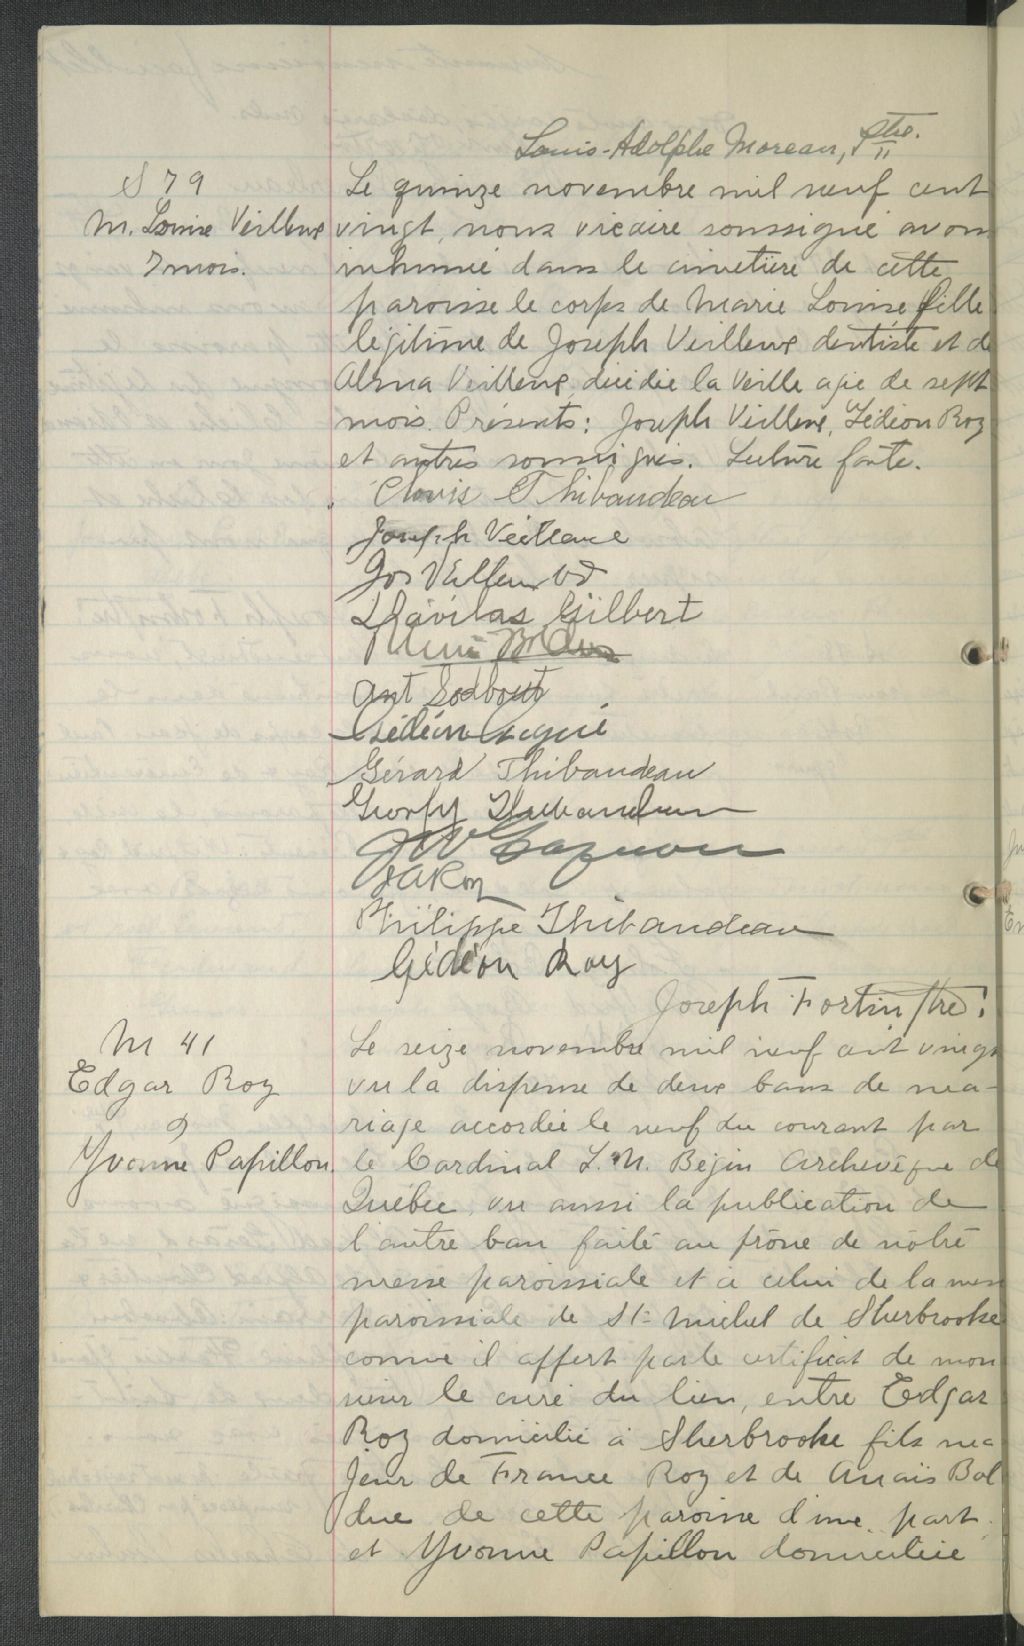 Louis-Adolphe Moreau, Ptre.
S 79
M. Louise Veilleux
7 mois.
Le quinze novembre mil neuf cent
vingt, nous vicaire soussigné avons
inhumé dans le cimetière de cette
paroisse le corps de Marie Louise fille
légitime de Joseph Veilleux dentiste et de
Alma Veilleux, décédée la veille agée de sept
mois. Présents: Joseph Veilleux, Gédéon Roy
et autres soussignés. Lecture faite.
Clovis Thibaudeau
Joseph Veilleux
Jos Veilleux
Gilbert
Ant Godbout
Gédéon
Gérard Thibaudeau
Thibaudeau
J A Roy
Philippe Thibaudeau
Gédéon Roy
Joseph Fortin, Ptre.
M 41
Edgar Roy
&
Yvonne Papillon
Le seize novembre mil neuf cent vingt
vu la dispense de deux bans de ma-
riage accordée le neuf du courant par
le Cardinal L. N. Bégin Archevêque de
Québec, vu aussi la publication de
l'autre ban faite au prône de nôtre
messe paroissiale et à celui de la messe
paroissiale de St-Michel de Sherbrooke
comme il appert par le certificat de mon
sieur le curé du lieu, entre Edgar
Roy domicilié à Sherbrooke fils ma
jeur de France Roy et de Anaïs Bol
duc de cette paroisse d'une part
et Yvonne Papillon domiciliée